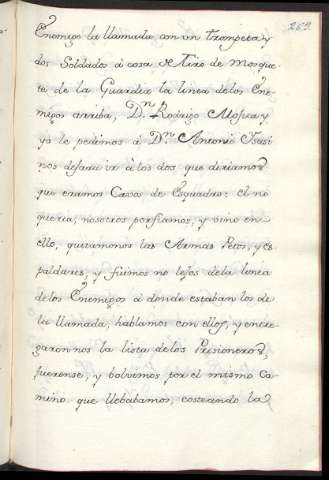 269.
Enemigo la llamada con un trompeta, y
dos Soldados à cosa de tiro de mosque
te de la Guardia la linea de los Ene
migos arriba, D.n Rodrigo Mosxa, y
yo le pedimos à D.n Antonio Isasi
nos dejara ir à los dos que diriamos
que eramos Cavos de Esquadra: el no
queria, nosotros porfiamos, y vino en
ello, quitamonos las Armas Petos, y es
paldares, y fuimos no lejos de la linea
de los Enemigos à donde estaban los de
la llamada, hablamos con ellos, y entre
garonnos la lista de los Prisioneros,
fuerense, y bolvimos por el mismo Ca
mino que llebabamos, costeando la